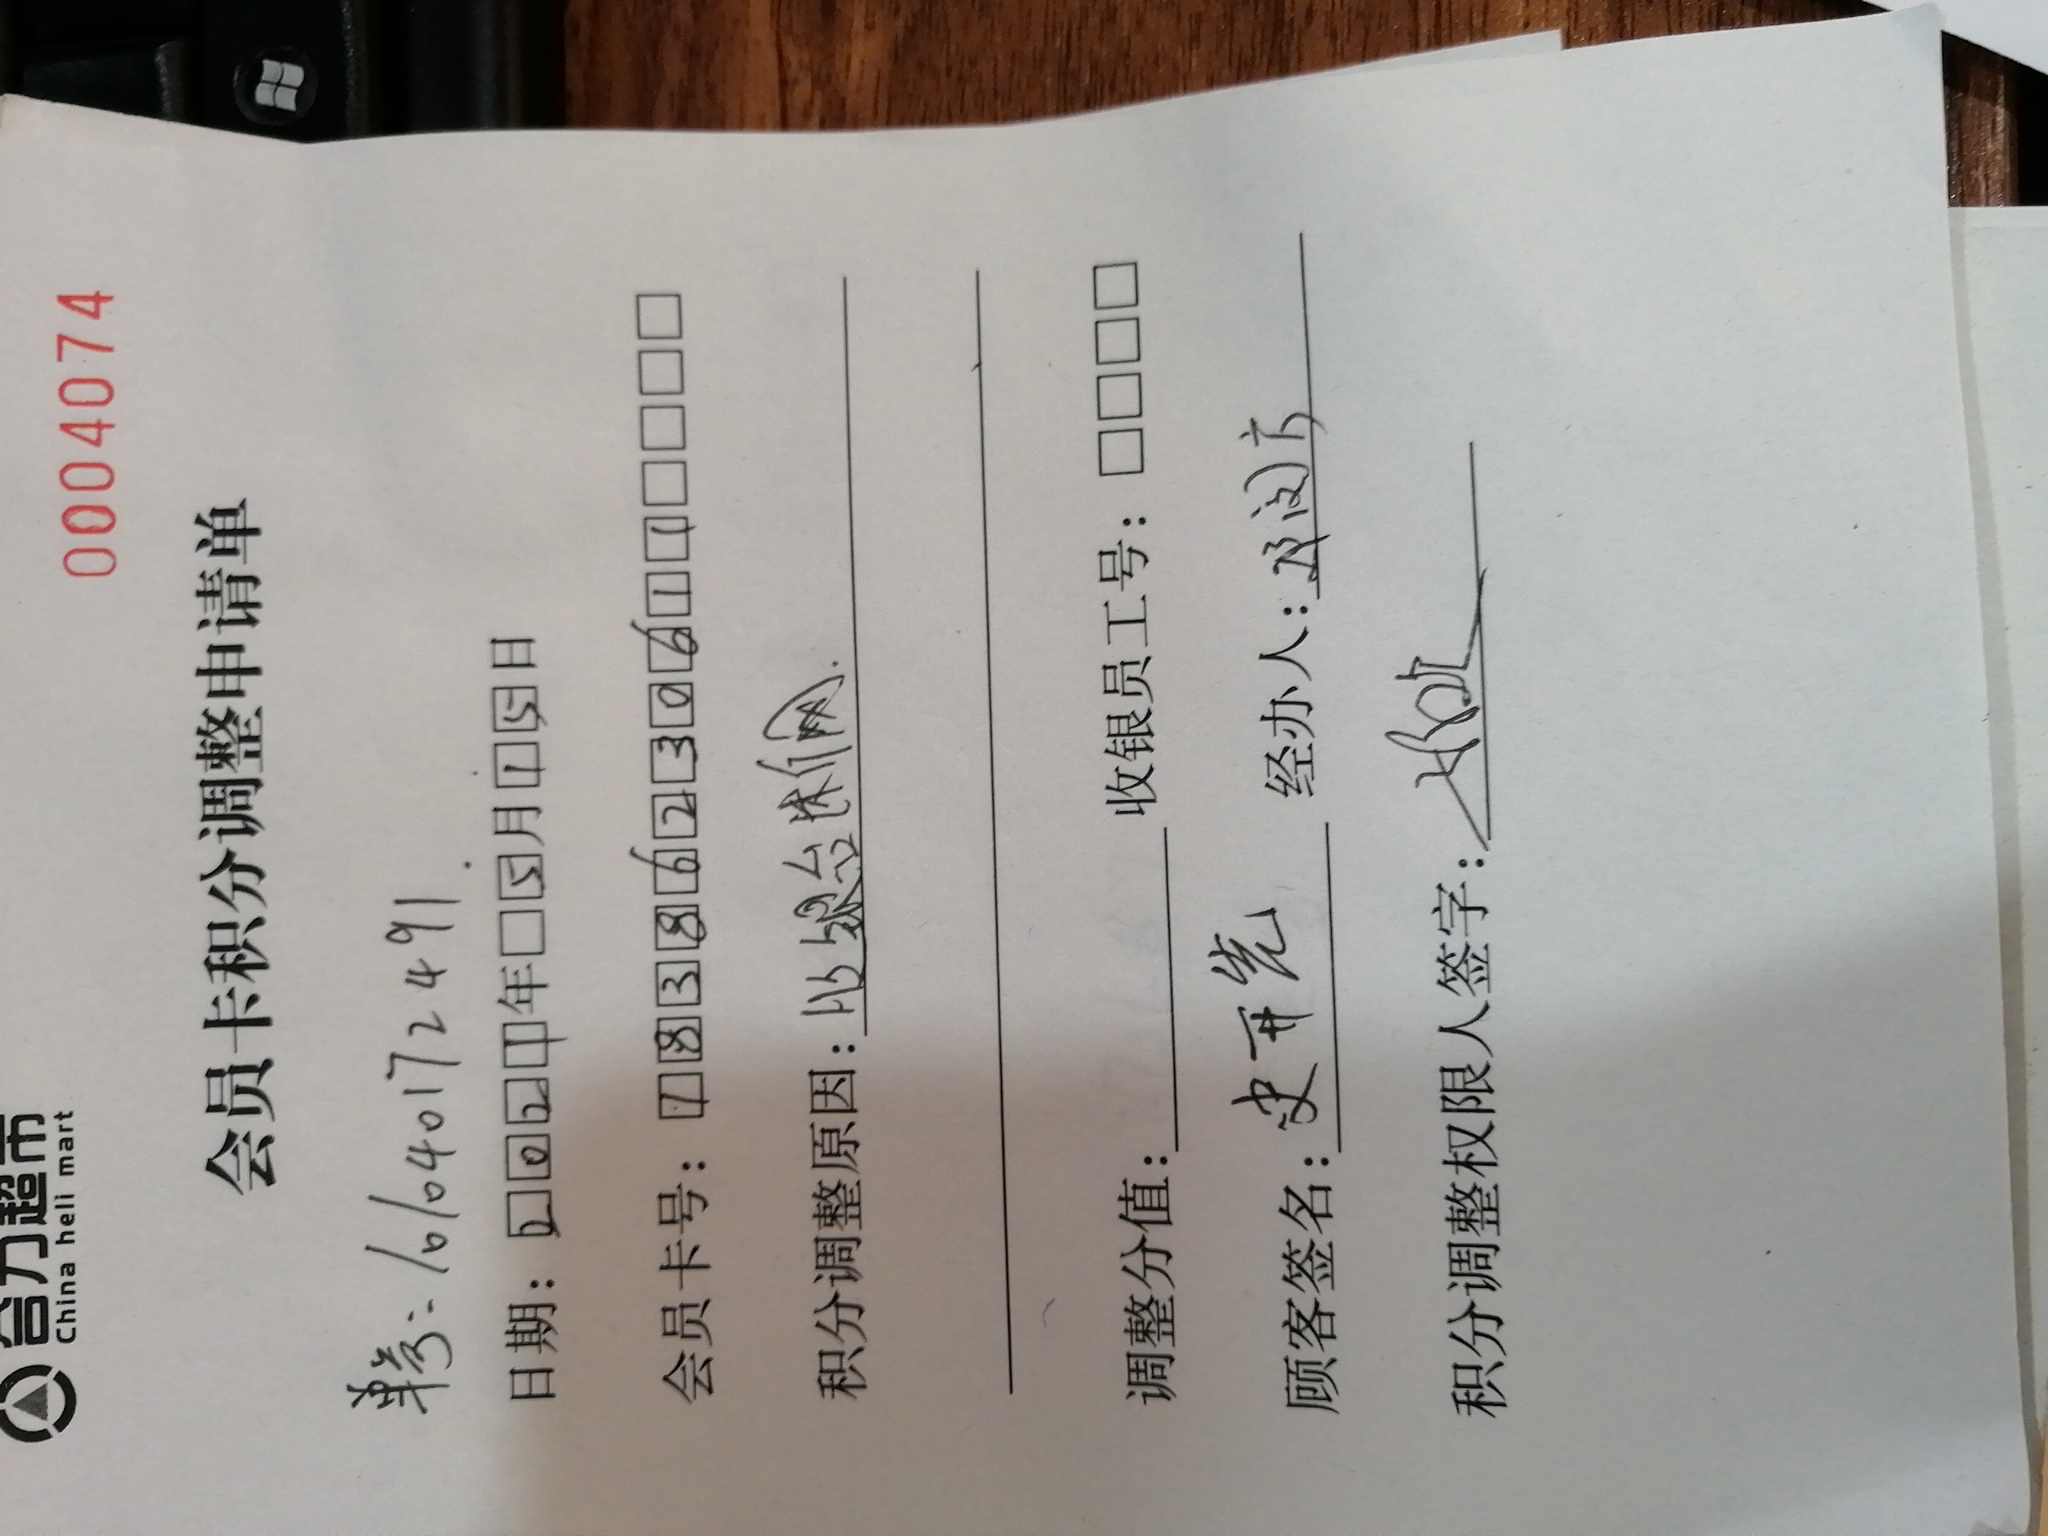 合力超市
China heli mart
0004074
会员卡积分调整申请单
单号:16/040172491
日期：2021年5月15日
会员卡号：18386230611
积分调整原因：
调整分值： 收银员工号：
顾客签名：史开先 经办人：
积分调整权限人签字：